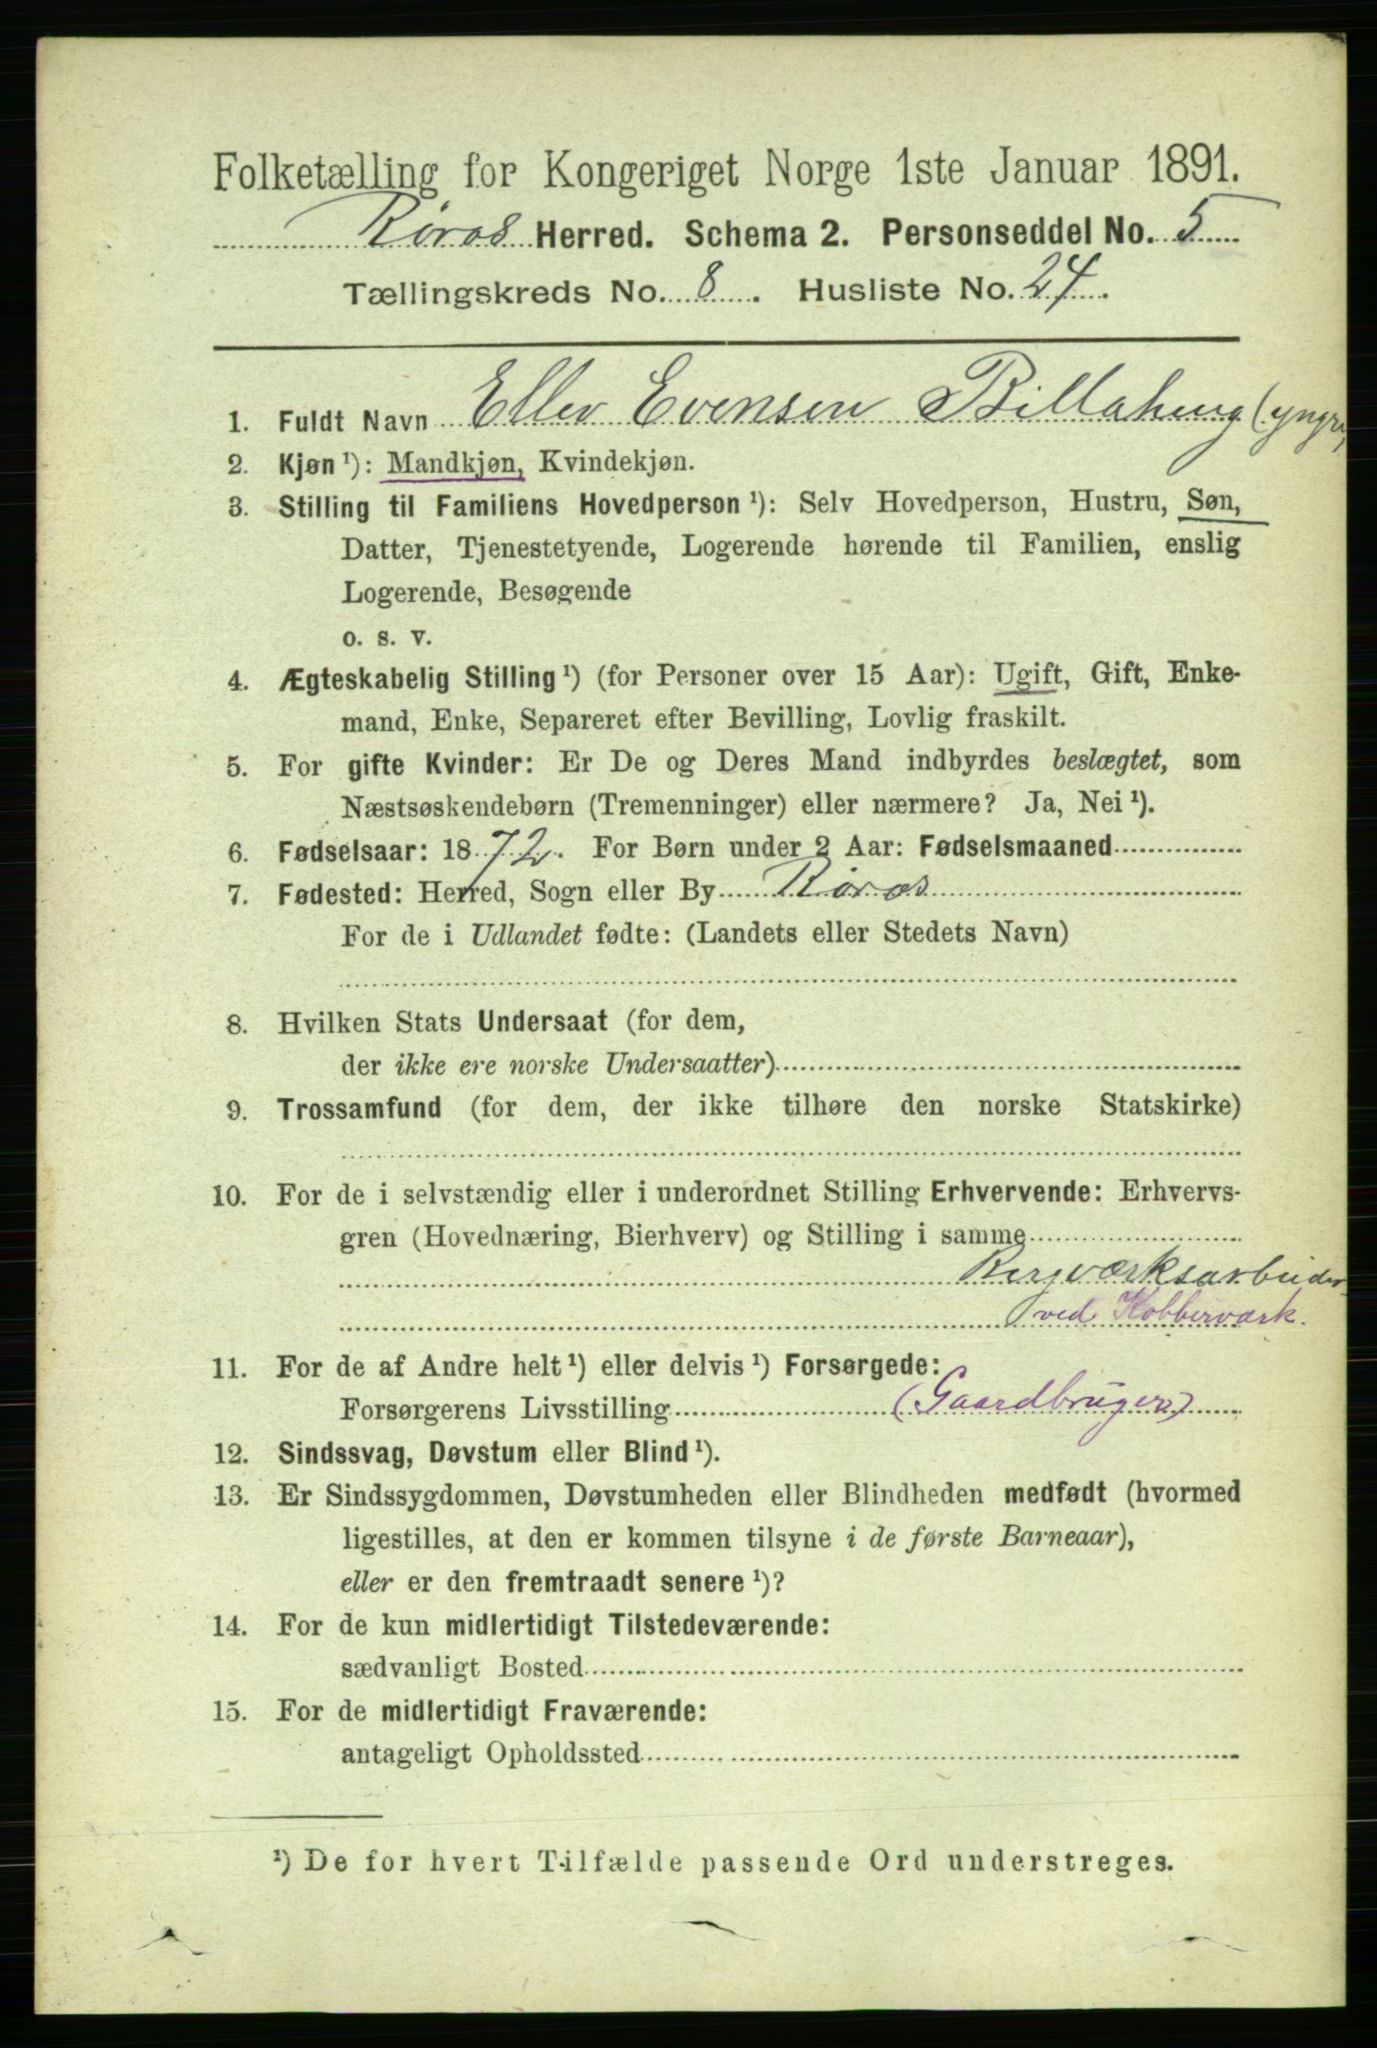 Folketælling for Kongeriget Norge 1ste Januar 1891.
Røros Herred. Schema 2. Personseddel No. 5
Tællingskreds No. 8. Husliste No. 24.
1. Fuldt Navn Ellev Evensen (yngre)
2. Kjøn ¹): Mandkjøn, Kvindekjøn.
3. Stilling til Familiens Hovedperson ¹): Selv Hovedperson, Hustru, Søn,
Datter, Tjenestetyende, Logerende hørende til Familien, enslig
Logerende, Besøgende
o. s. v.
4. Ægteskabelig Stilling ¹) (for Personer over 15 Aar): Ugift, Gift, Enke-
mand, Enke, Separeret efter Bevilling, Lovlig fraskilt.
5. For gifte Kvinder: Er De og Deres Mand indbyrdes beslægtet, som
Næstsøskendebørn (Tremenninger) eller nærmere? Ja, Nei ¹).
6. Fødselsaar: 1872. For Børn under 2 Aar: Fødselsmaaned
7. Fødested: Herred, Sogn eller By Røros
For de i Udlandet fødte: (Landets eller Stedets Navn)
8. Hvilken Stats Undersaat (for dem,
der ikke ere norske Undersaatter)
9. Trossamfund (for dem, der ikke tilhøre den norske Statskirke)
10. For de i selvstændig eller i underordnet Stilling Erhvervende: Erhvervs-
gren (Hovednæring, Bierhverv) og Stilling i samme
Bergværksarbeider
ved Kobberværk.
11. For de af Andre helt ¹) eller delvis ¹) Forsørgede:
Forsørgerens Livsstilling (Gaardbruger)
12. Sindssvag, Døvstum eller Blind ¹).
13. Er Sindssygdommen, Døvstumheden eller Blindheden medfødt (hvormed
ligestilles, at den er kommen tilsyne i de første Barneaar),
eller er den fremtraadt senere ¹)?
14. For de kun midlertidigt Tilstedeværende:
sædvanligt Bosted
15. For de midlertidigt Fraværende:
antageligt Opholdssted
¹) De for hvert Tilfælde passende Ord understreges.